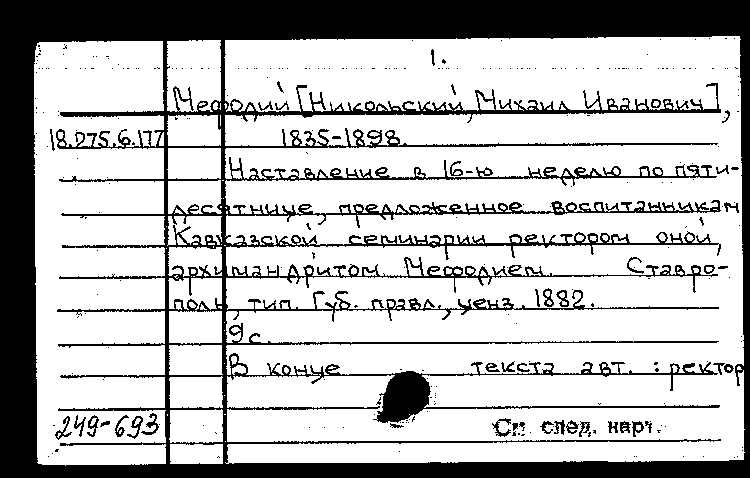 1.
Мефодий [Никольский, Михаил Иванович],
18.D75.6.177 1835-1898.
Наставление в 16-ю неделю по пяти-
десятнице, предложенное воспитанникам
Кавказской семинарии ректором оной,
архимандритом Мефодием. Ставро-
поль, тип. Губ. правл., ценз. 1882.
9с.
В конце текста авт.: ректор
249-693 См след. карт.